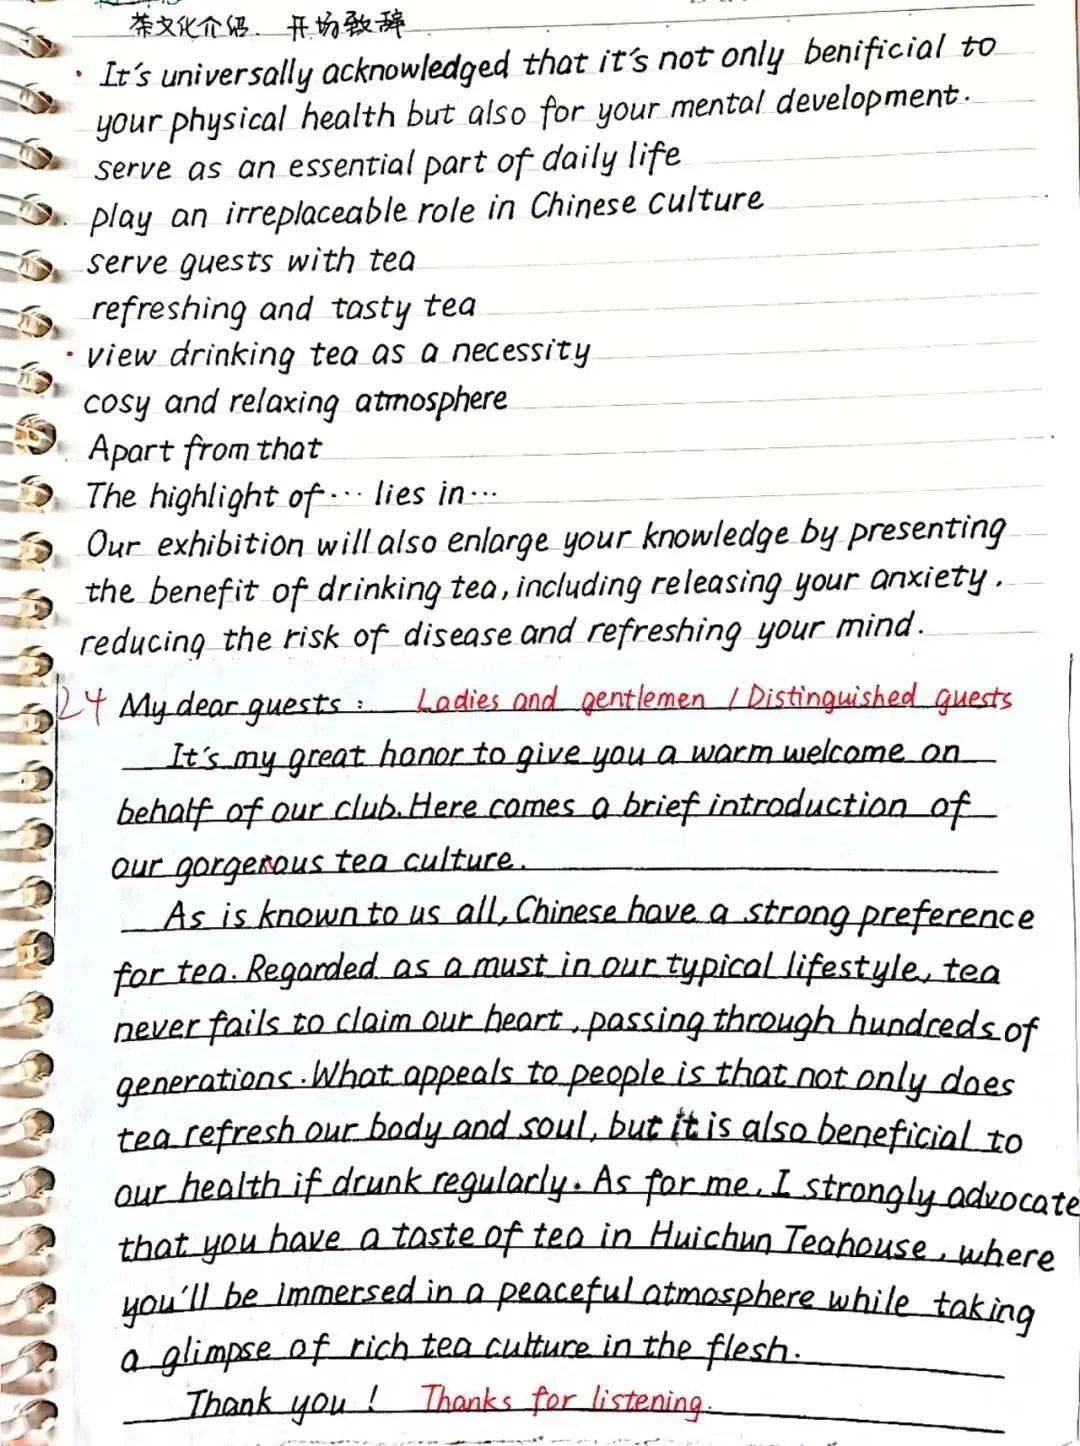 茶文化介绍. 开场致辞
· It's universally acknowledged that it's not only benificial to
your physical health but also for your mental development.
serve as an essential part of daily life
play an irreplaceable role in Chinese culture
serve guests with tea
refreshing and tasty tea
· view drinking tea as a necessity
cosy and relaxing atmosphere
Apart from that
The highlight of ··· lies in ···
Our exhibition will also enlarge your knowledge by presenting
the benefit of drinking tea, including releasing your anxiety,
reducing the risk of disease and refreshing your mind.
24 My dear guests: Ladies and gentlemen / Distinguished guests
It's my great honor to give you a warm welcome on
behalf of our club. Here comes a brief introduction of
our gorgeous tea culture.
As is known to us all, Chinese have a strong preference
for tea. Regarded as a must in our typical lifestyle, tea
never fails to claim our heart, passing through hundreds of
generations. What appeals to people is that not only does
tea refresh our body and soul, but it is also beneficial to
our health if drunk regularly. As for me, I strongly advocate
that you have a taste of tea in Huichun Teahouse, where
you'll be immersed in a peaceful atmosphere while taking
a glimpse of rich tea culture in the flesh.
Thank you! Thanks for listening.